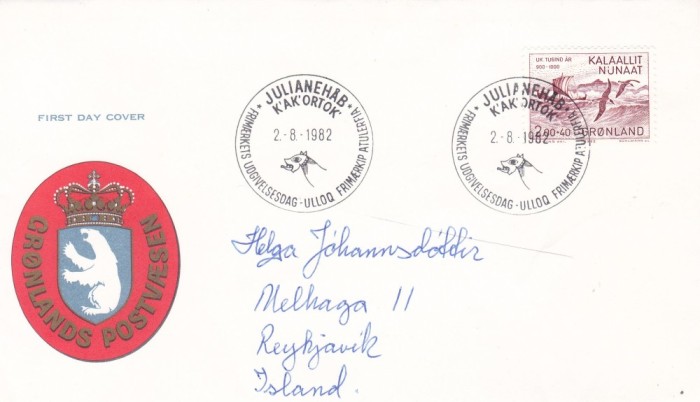 FIRST DAY COVER
GRØNLANDS POSTVÆSEN
JULIANEHÅB
K'AK'ORTOK'
2.-8.-1982
* FRIMÆRKETS UDGIVELSESDAG - ULLOQ FRIMÆRKIP ATULERFIA *
JULIANEHÅB
K'AK'ORTOK'
2.-8.-1982
* FRIMÆRKETS UDGIVELSESDAG - ULLOQ FRIMÆRKIP ATULERFIA *
UK TUSIND ÅR
900-1000
KALAALLIT
NUNAAT
2.00+40 GRØNLAND
Helga Jóhannsdóttir
Melhaga 11
Reykjavík
Ísland.